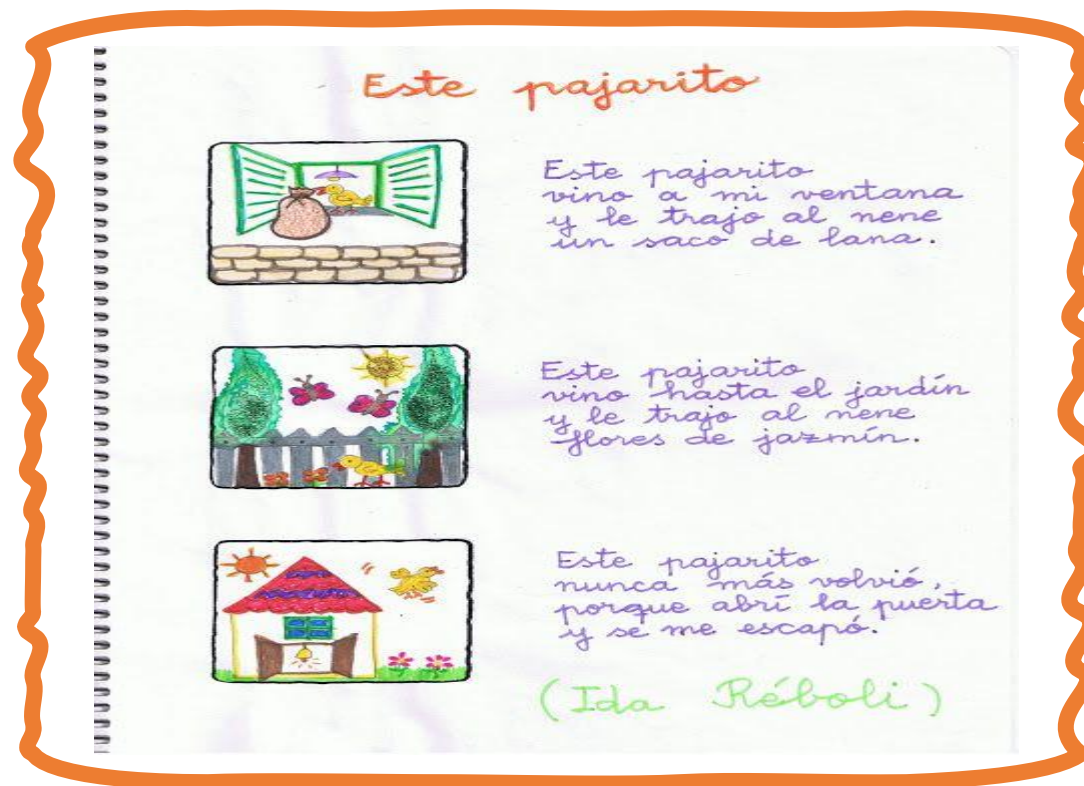 Este pajarito
Este pajarito
vino a mi ventana
y le trajo al nene
un saco de lana.
Este pajarito
vino hasta el jardín
y le trajo al nene
flores de jazmín.
Este pajarito
nunca más volvió,
porque abrí la puerta
y se me escapó.
(Ida Réboli)